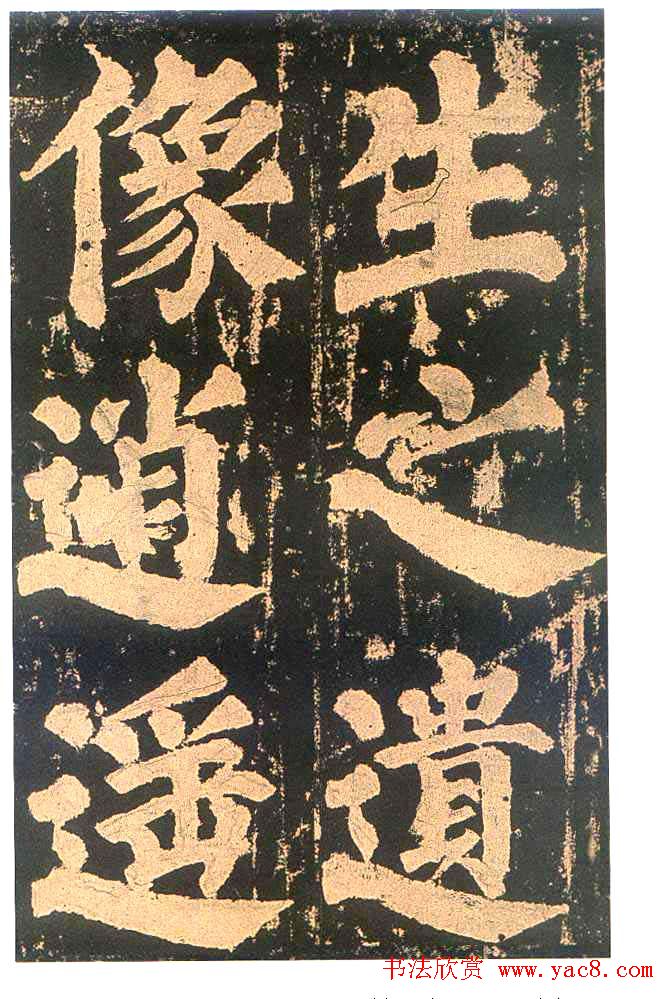 生之遺
像逍遥
书法欣赏 www.yac8.com